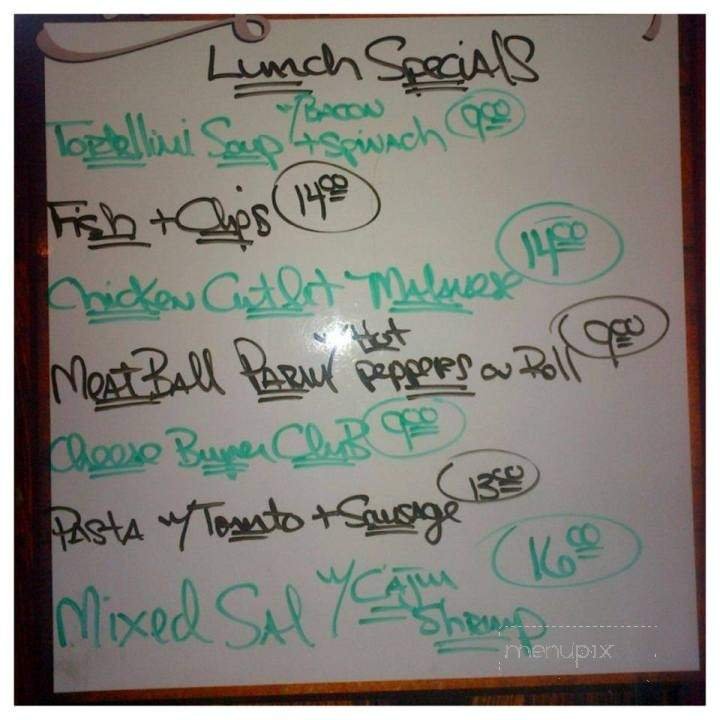 Lunch Specials
Tortellini Soup w/ Bacon + Spinach 9.00
Fish + Chips 14.00
Chicken Cutlet Milanese 14.00
Meat Ball Parm w/ Hot Peppers on Roll 9.00
Cheese Burger Club 9.00
Pasta w/ Tomato + Sausage 13.00
Mixed Sal w/ Cajun Shrimp 16.00
menupix